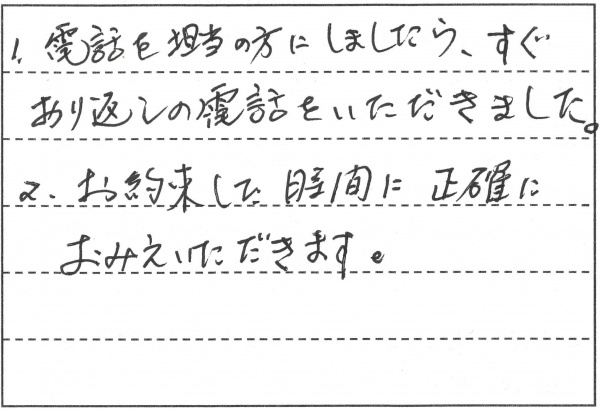 1. 電話を担当の方にしましたら、すぐ
おり返しの電話をいただきました。
2. お約束した時間に正確に
おみえいただきます。